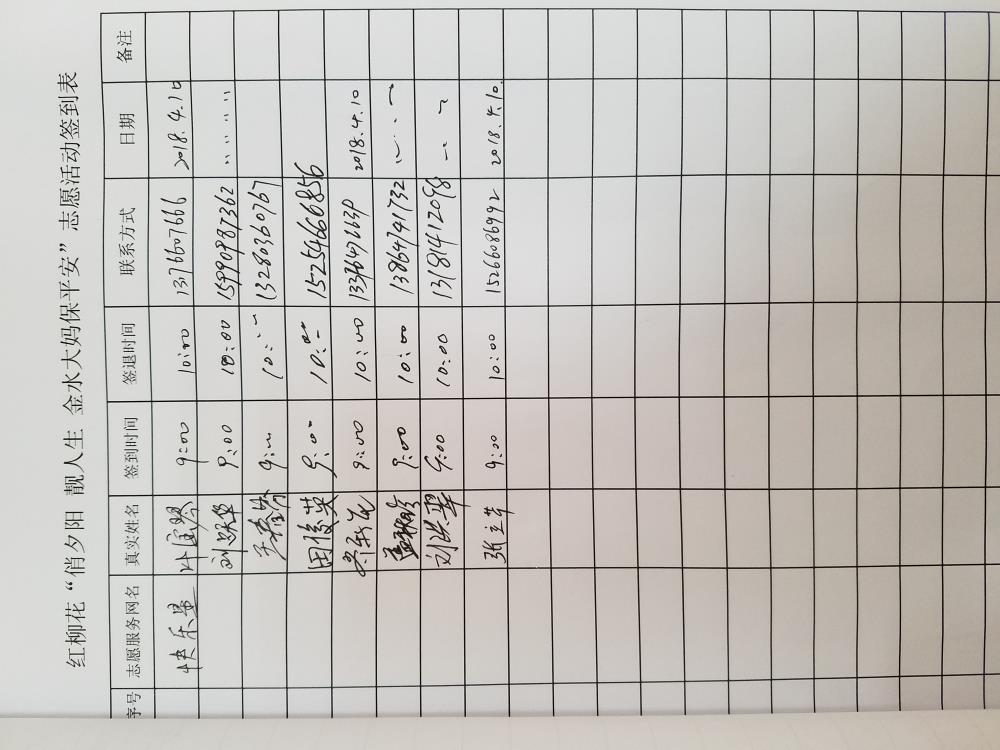 红柳花“俏夕阳 靓人生 金水大妈保平安”志愿活动签到表
序号 志愿服务网名 真实姓名 签到时间 签退时间 联系方式 日期 备注
快乐 9:00 10:00 13766607666 2018.4.10
9:00 10:00 15990987362 〃 〃 〃 〃
10:00 13280360767
田俊英 9:00 10:00 15254666856
9:00 10:00 2018.4.10
9:00 10:00 13864741732
刘洪翠 9:00 10:00 13181412098
张立苹 9:00 10:00 15266086992 2018.4.10.